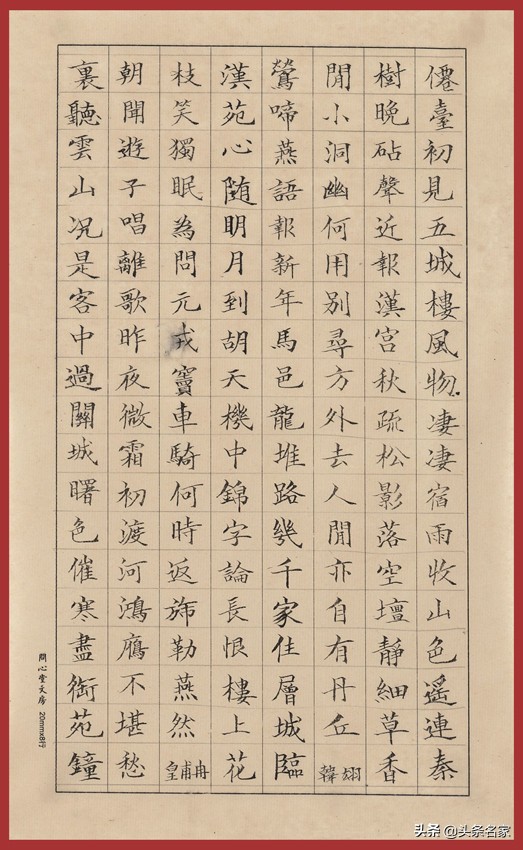 僊臺初見五城樓風物凄凄宿雨收山色遙連秦
樹晚砧聲近報漢宮秋疏松影落空壇靜細草香
閒小洞幽何用別尋方外去人閒亦自有丹丘 韓翃
鶯啼燕語報新年馬邑龍堆路幾千家住層城臨
漢苑心随明月到胡天機中錦字論長恨樓上花
枝笑獨眠為問元戎竇車騎何時返旆勒燕然 皇甫冉
朝聞遊子唱離歌昨夜微霜初渡河鴻鴈不堪愁
裏聽雲山况是客中過關城曙色催寒盡御苑鐘
問心堂文房 20mm8行
头条 @头条名家